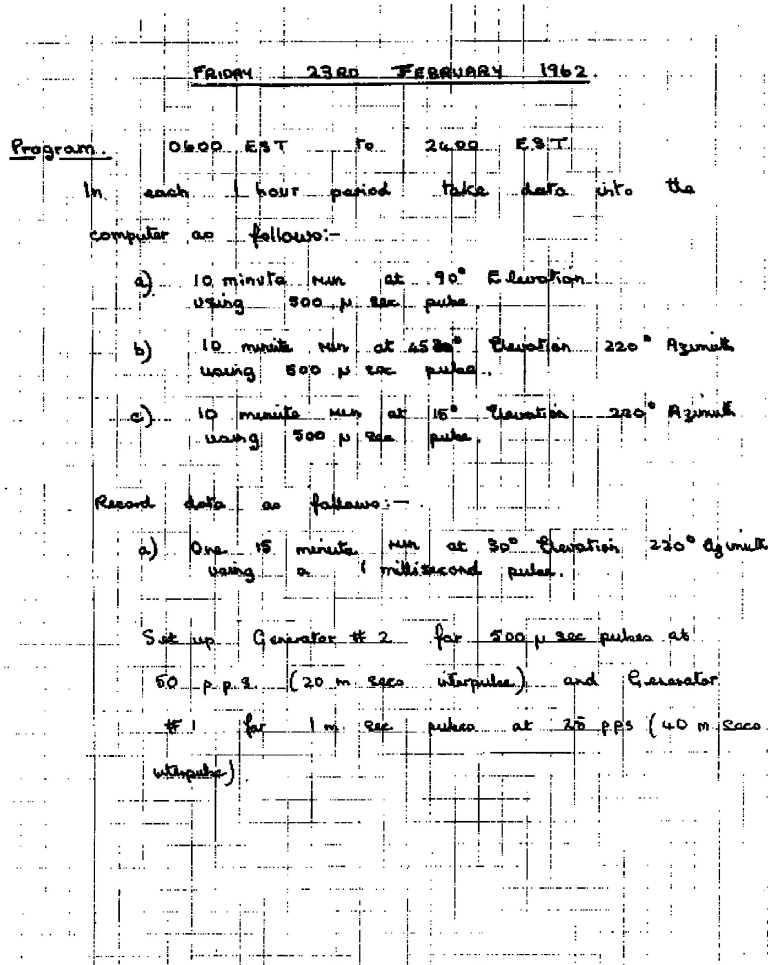 FRIDAY 23RD FEBRUARY 1962.
Program. 0600 EST to 2400 EST
In each 1 hour period take data into the
computer as follows:-
a) 10 minute run at 90° Elevation
using 500 μ sec pulse.
b) 10 minute run at 30° Elevation 220° Azimuth
using 500 μ sec pulse.
c) 10 minute run at 15° Elevation 220° Azimuth
using 500 μ sec pulse.
Record data as follows:-
a) One 15 minute run at 30° Elevation 220° Azimuth
using a 1 millisecond pulse.
Set up Generator # 2 for 500 μ sec pulses at
50 p.p.s. (20 m secs interpulse) and Generator
# 1 for 1 m sec pulses at 25 pps (40 m secs
interpulse)